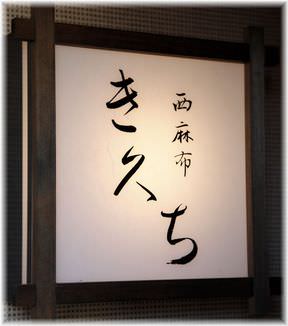 西麻布
き久ち